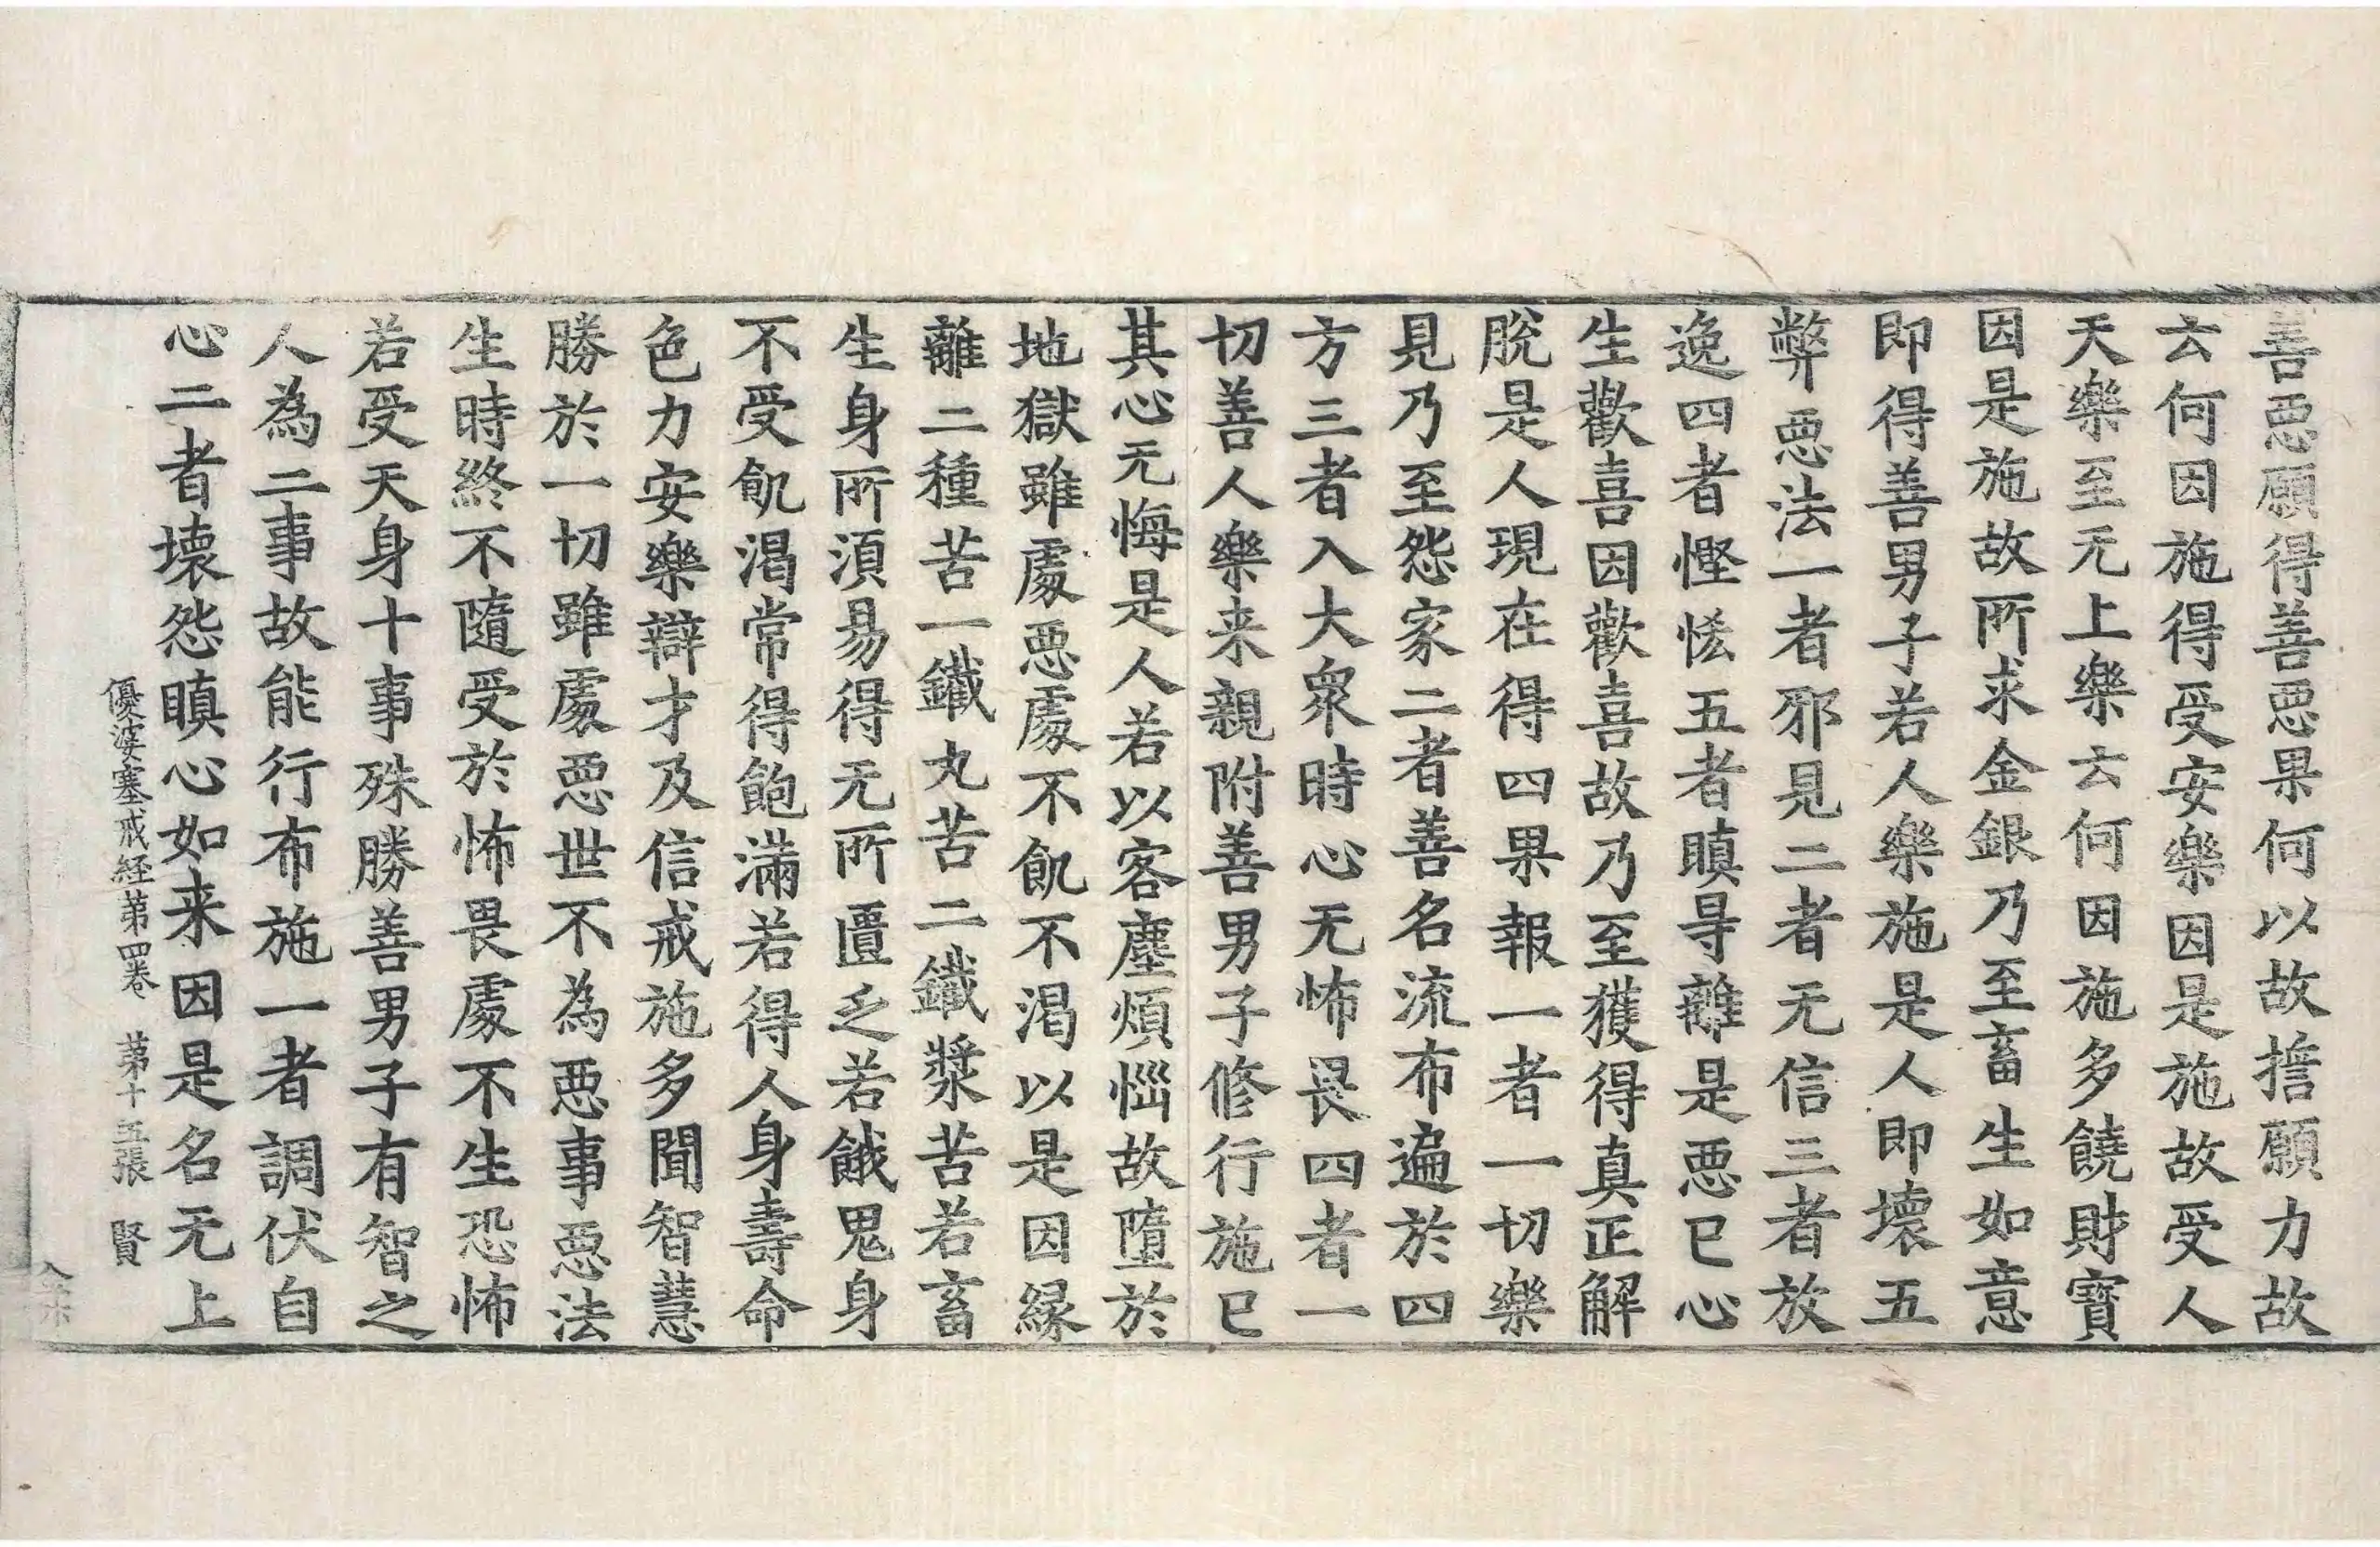 善惡願得善惡果何以故擔願力故
云何因施得受安樂因是施故受人
天樂至无上樂云何因施多饒財寶
因是施故所求金銀乃至畜生如意
即得善男子若人樂施是人即壞五
弊惡法一者邪見二者无信三者放
逸四者慳恡五者瞋㝵離是惡已心
生歡喜因歡喜故乃至獲得真正解
脫是人現在得四果報一者一切樂
見乃至怨家二者善名流布遍於四
方三者入大衆時心无怖畏四者一
切善人樂来親附善男子修行施已
其心无悔是人若以客塵煩惱故墮於
地獄雖處惡處不飢不渴以是因緣
離二種苦一鐵丸苦二鐵漿苦若畜
生身所須易得无所匱乏若餓鬼身
不受飢渴常得飽滿若得人身壽命
色力安樂辯才及信戒施多聞智慧
勝於一切雖處惡世不為惡事惡法
生時終不隨受於怖畏處不生恐怖
若受天身十事殊勝善男子有智之
人為二事故能行布施一者調伏自
心二者壞怨瞋心如来因是名无上
優婆塞戒経苐四卷 苐十五張 賢